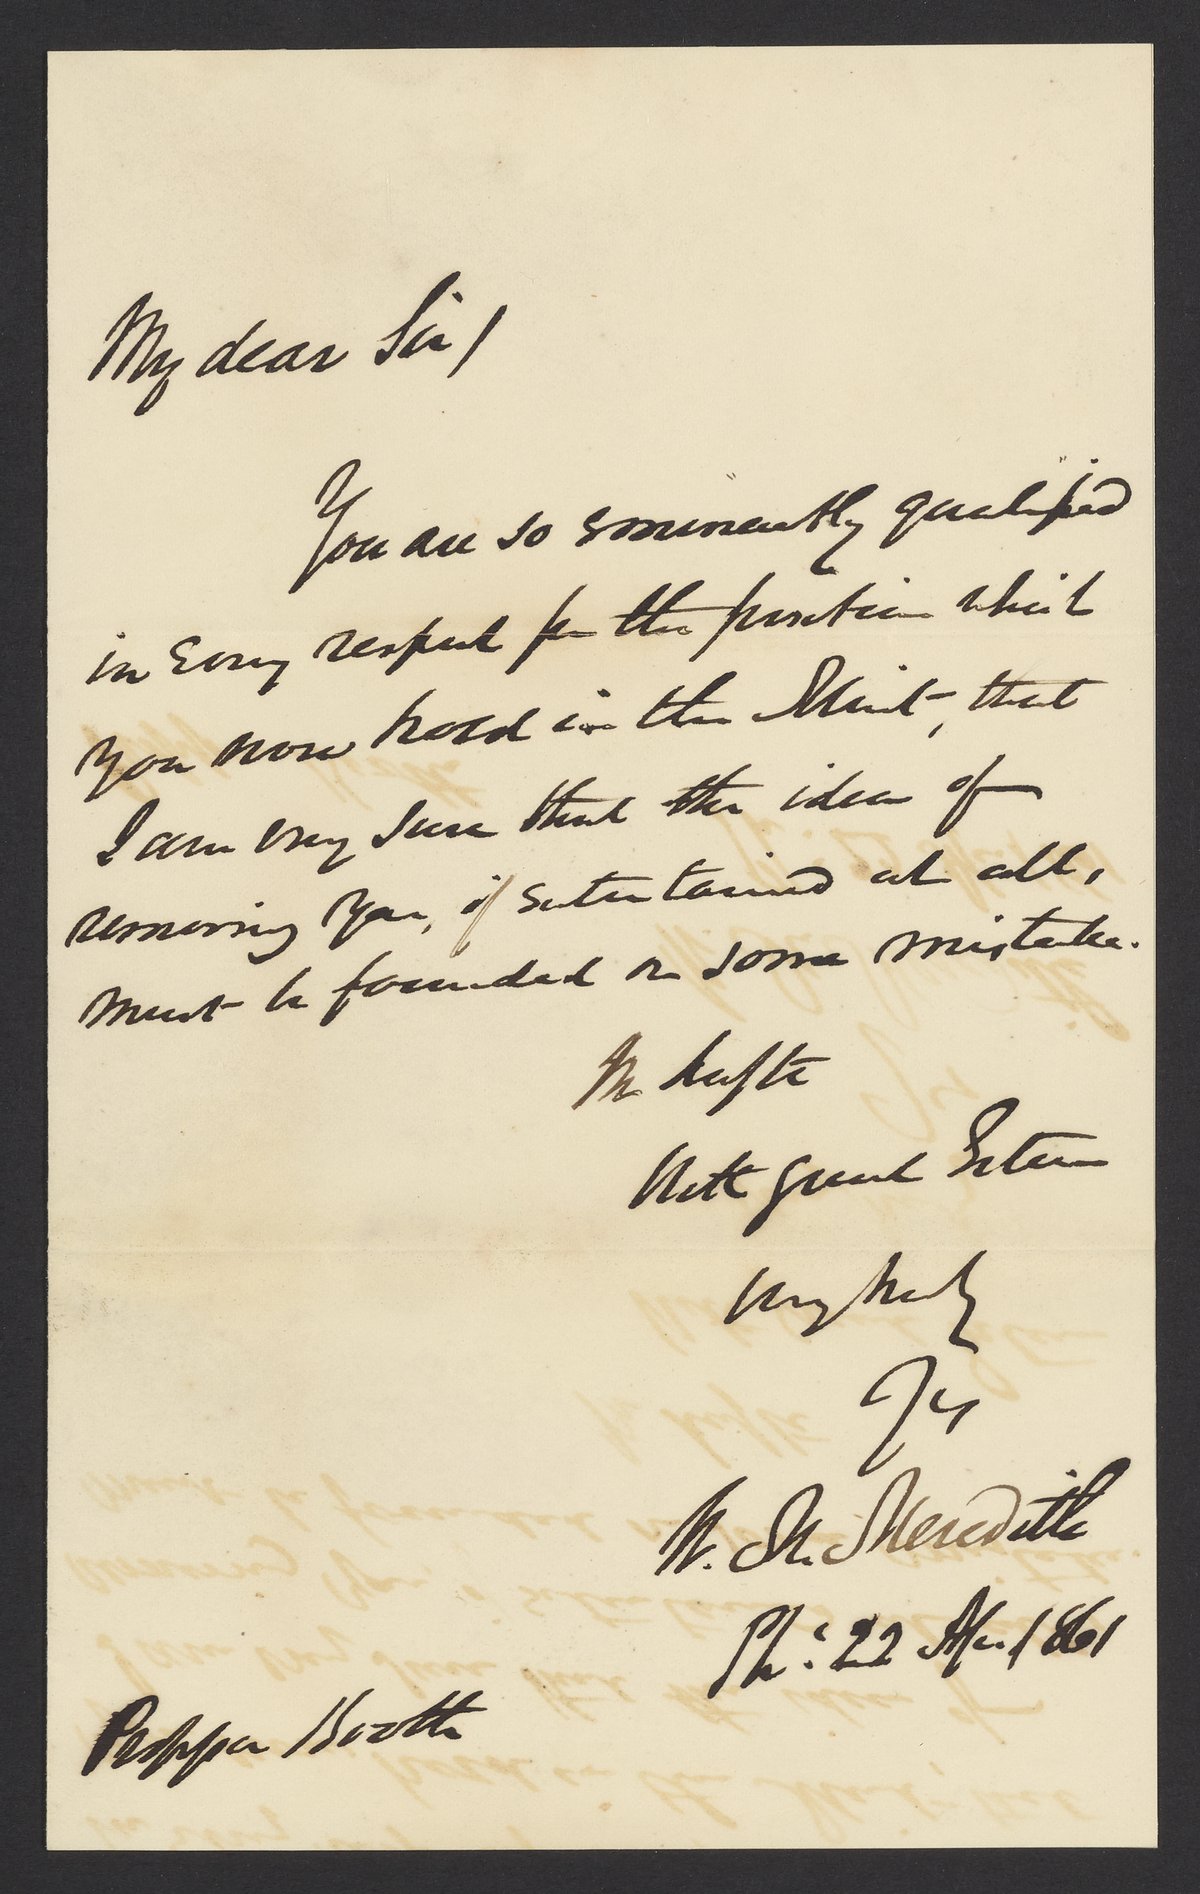 My dear Sir/
You are so eminently qualified
in every respect for the position which
you now hold in the Mint, that
I am very sure that the idea of
removing you, if entertained at all,
must be founded on some mistake.
With great Esteem
Very truly
Yrs
W. M. Meredith
Ph: 22 Apr 1861
Booth